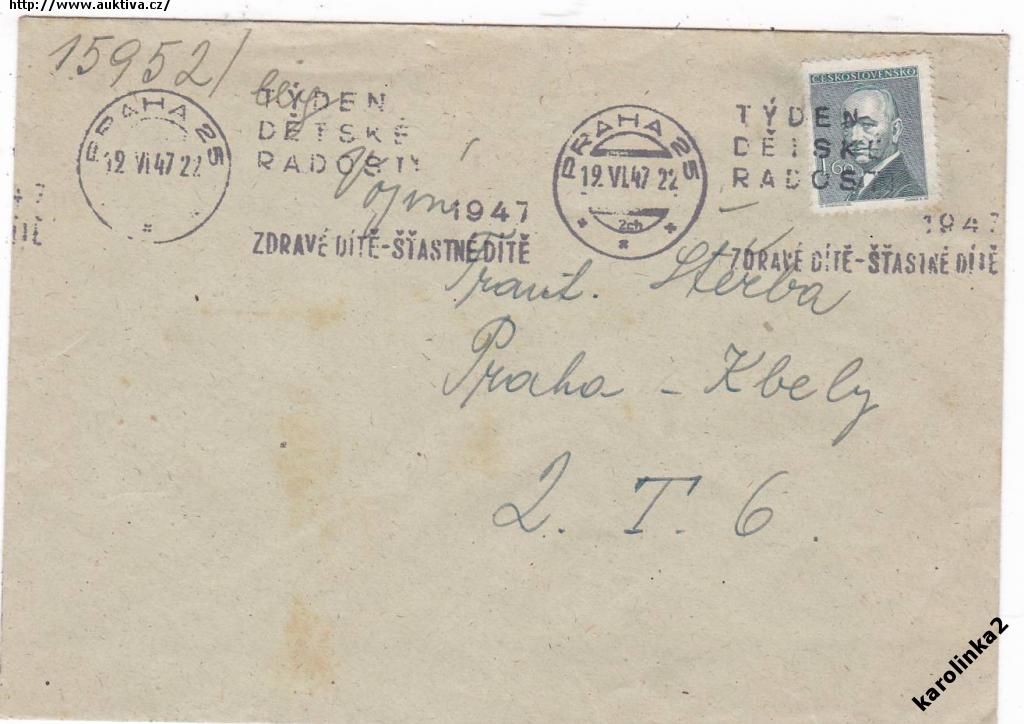 http://www.auktiva.cz/
15952/
ČESKOSLOVENSKO
1.60
PRAHA 25
19. VI. 47 22
TÝDEN
DĚTSKÉ
RADOSTI
1947
ZDRAVÉ DÍTĚ-ŠŤASTNÉ DÍTĚ
PRAHA 25
19. VI. 47 22
2ch
TÝDEN
DĚTSKÉ
RADOS
1947
ZDRAVÉ DÍTĚ-ŠŤASTNÉ DÍTĚ
47
Frant. Štěrba
Praha - Kbely
2. T. 6.
karolinka2